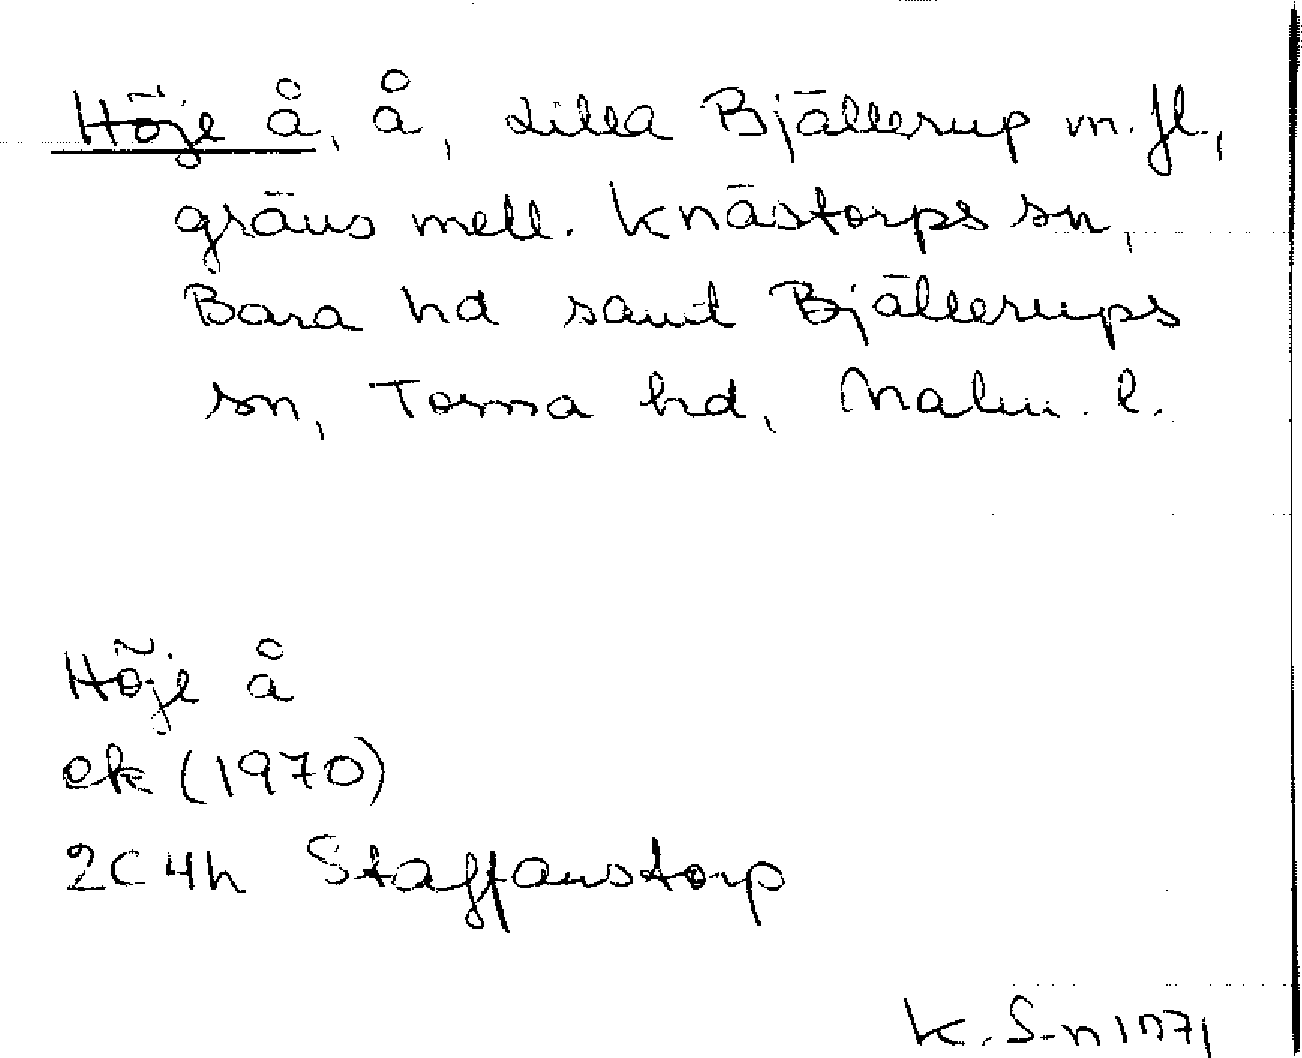 Höje å, å, Lilla Bjällerup m.fl.,
gräns mell. Knästorps sn,
Bara hd samt Bjällerups
sn, Torna hd, Malm. l.
Höje å
ek (1970)
2C 4h Staffanstorp
K. S-n 1971